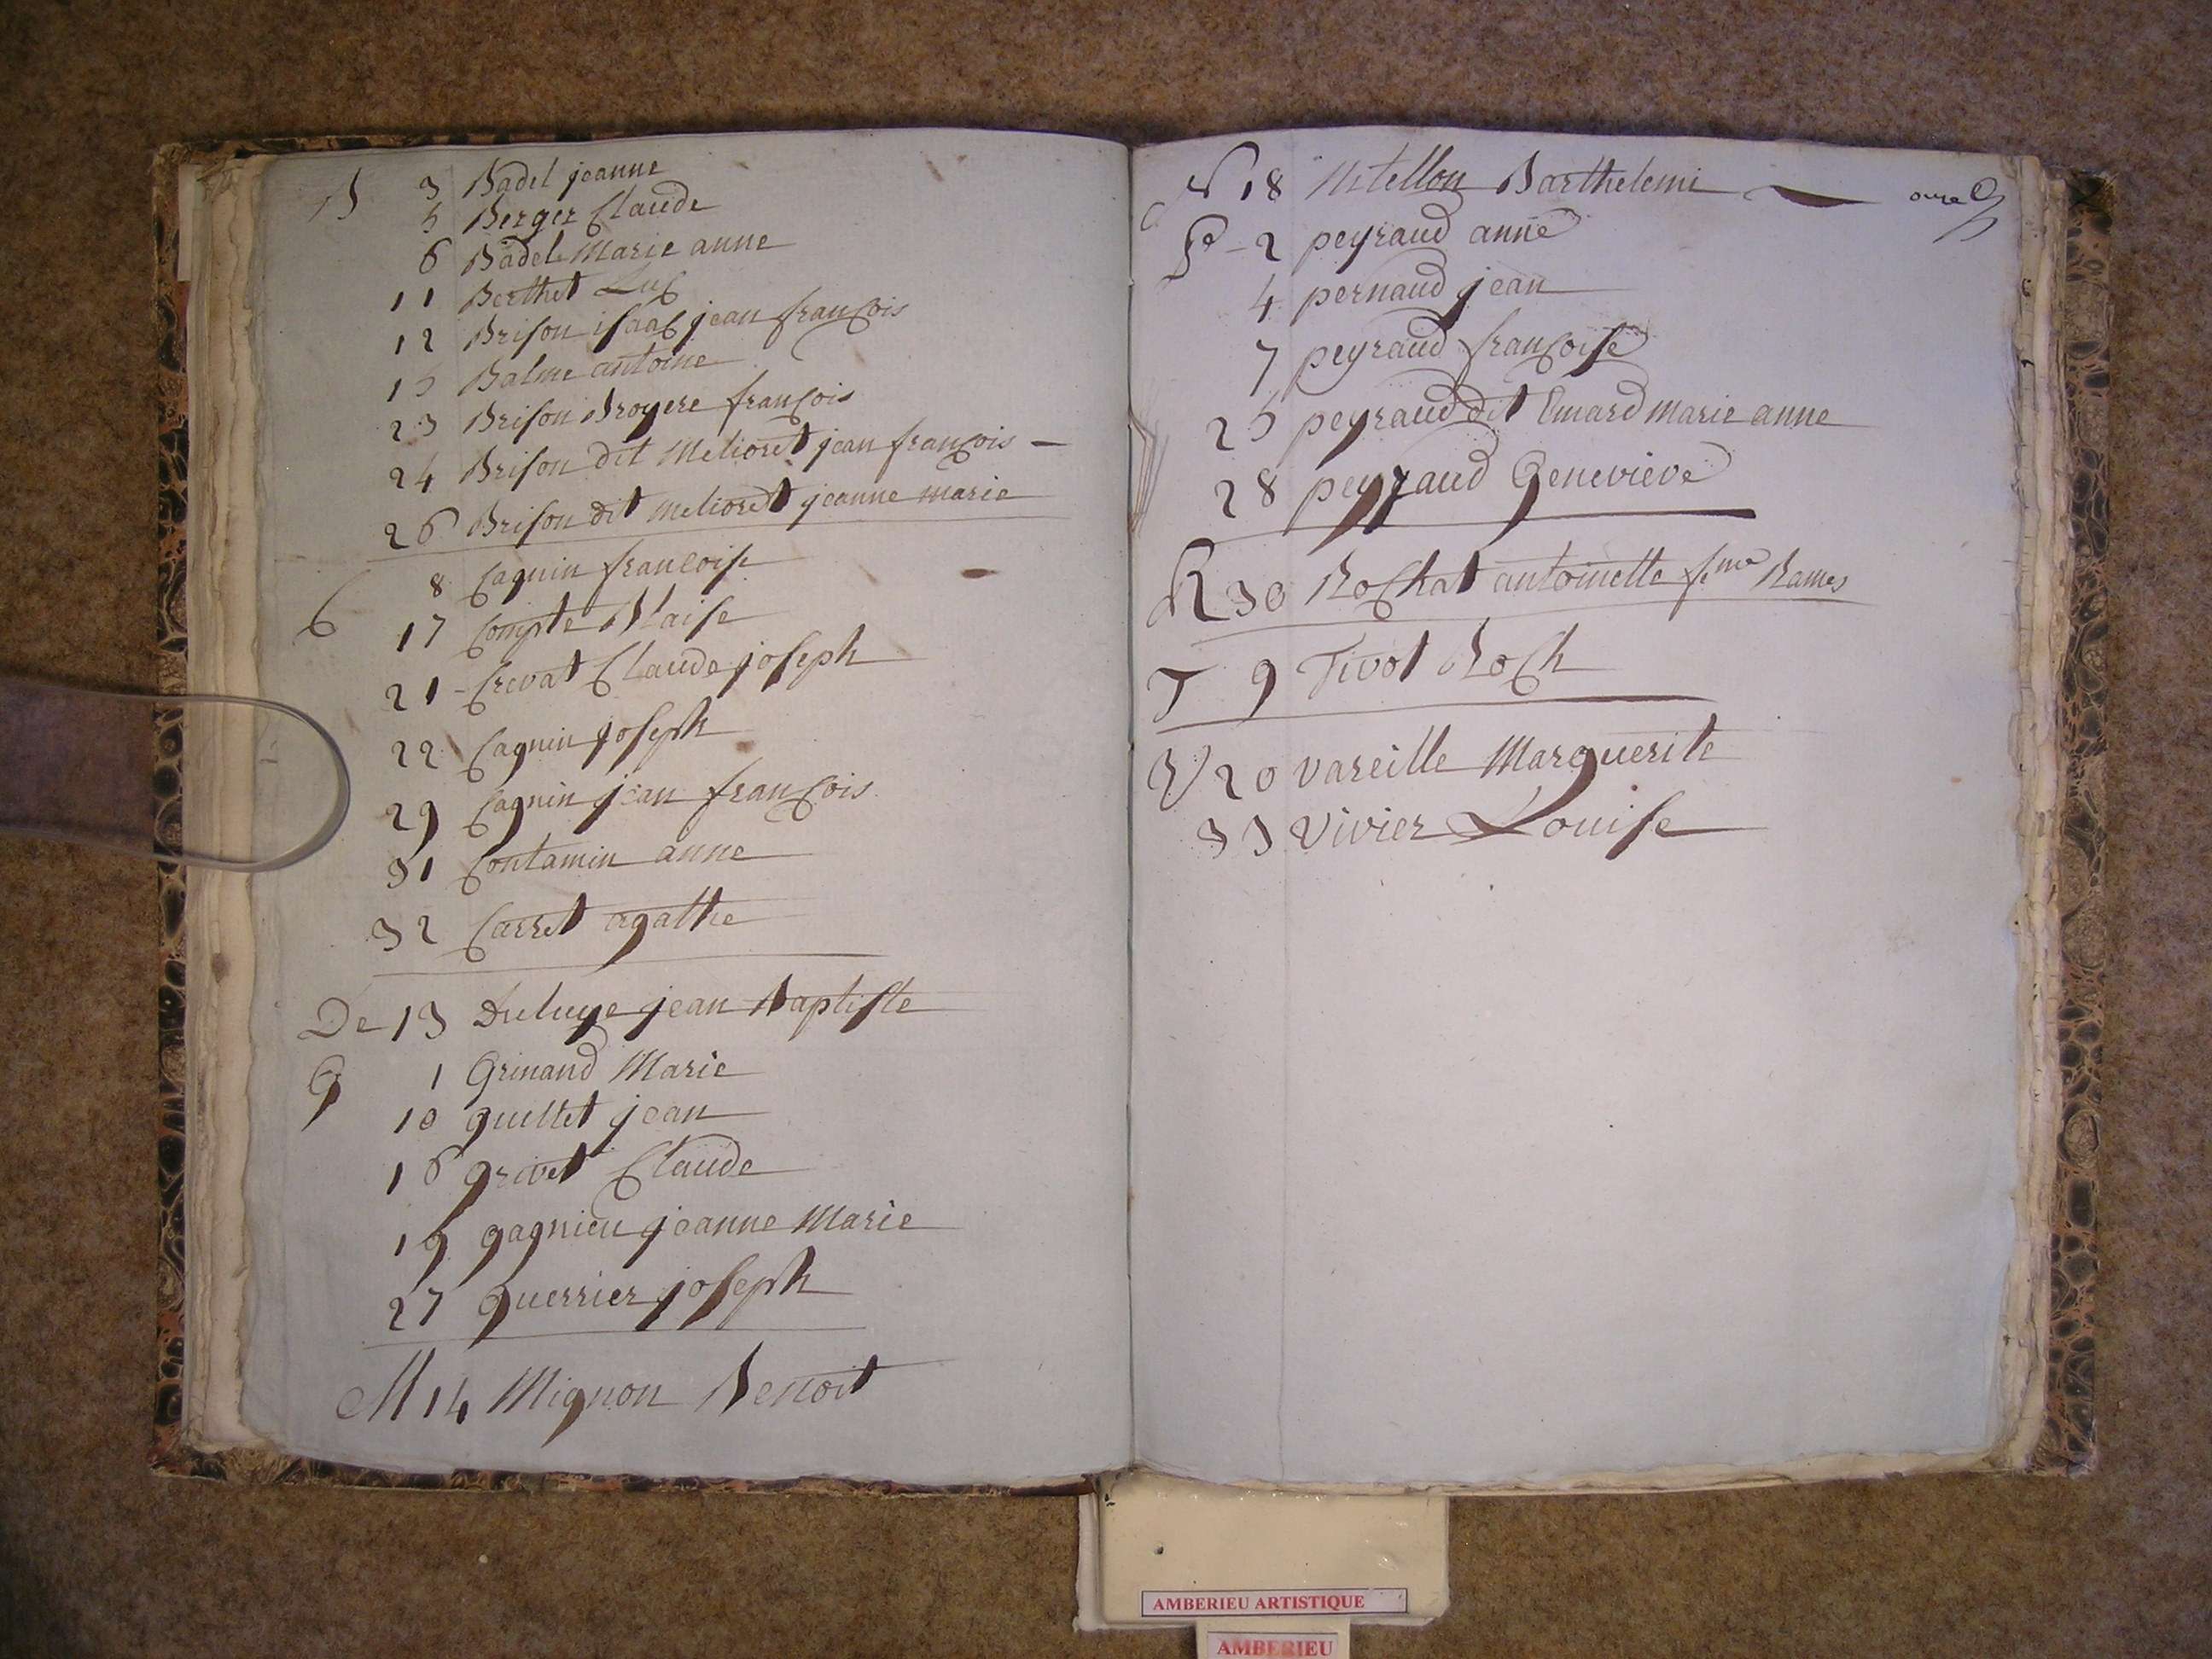 B 3 Badel jeanne
5 Berger Claude
6 Badel Marie anne
11 Berthet Luc
12 Brison isaac jean françois
15 Balme antoine
23 Brison Broyere françois
24 Brison dit Melioret jean françois –
26 Brison dit melioret jeanne marie
C 8 Cagnin francoise
17 Compte Blaise
21 – Crevat Claude joseph
22 Cagnin joseph
29 Cagnin jean françois
31 Contamin anne
32 Carret agathe
De 13 jean Baptiste
G 1 Grinand Marie
10 guillet jean
16 grivet Claude
19 gagnieu jeanne Marie
27 guerrier joseph
M 14 Mignon Benoit
N 18 Nitellon Barthelemi
P – 2 peyraud anne
4 pernaud jean
7 peyraud françoise
25 peyraud dit Emard marie anne
28 peyraud Genevieve
R 30 Rochat antoinette fme Rames
T 9 Tivot Roch
V 20 vareille Marguerite
33 vivier Louise
AMBERIEU ARTISTIQUE
AMBERIEU